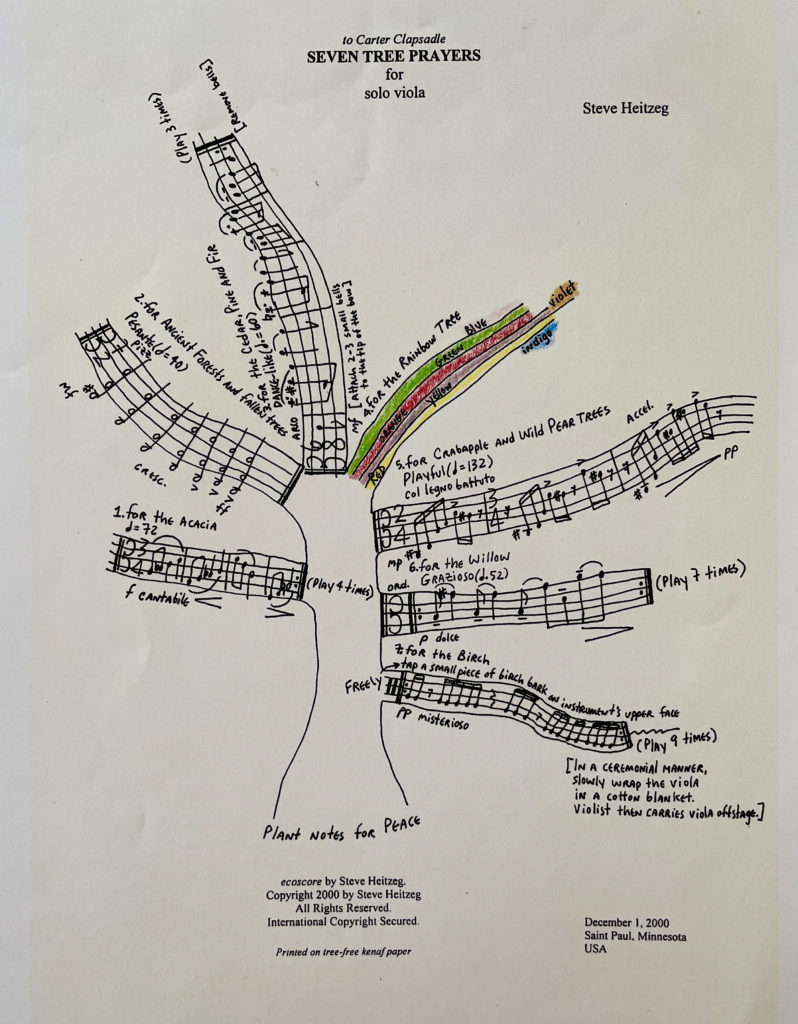 to Carter Clapsadle
SEVEN TREE PRAYERS
for
solo viola
Steve Heitzeg
1. for the Acacia
♩=72
f cantabile
(Play 4 times)
2. for Ancient Forests and fallen trees
Pesante (♩=40)
pizz
mf
cresc.
ff
3. for the Cedar, Pine and Fir
Dance-like (♩.=60)
arco
mf [attach 2-3 small bells
to the tip of the bow]
(Play 3 times)
[Remove bells]
4. for the Rainbow Tree
Red
Orange
Yellow
Green
Blue
indigo
violet
5. for Crabapple and Wild Pear Trees
Playful (♩=132)
col legno battuto
mp
accel.
pp
6. for the Willow
Grazioso (♩.52)
ord.
p dolce
(Play 7 times)
7. for the Birch
tap a small piece of birch bark on instrument's upper face
Freely
pp misterioso
(Play 9 times)
[In a ceremonial manner,
slowly wrap the viola
in a cotton blanket.
Violist then carries viola offstage.]
Plant notes for Peace
ecoscore by Steve Heitzeg.
Copyright 2000 by Steve Heitzeg
All Rights Reserved.
International Copyright Secured.
Printed on tree-free kenaf paper
December 1, 2000
Saint Paul, Minnesota
USA